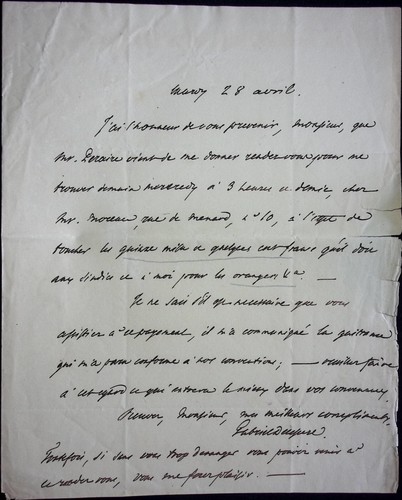 mardy 28 avril.
J'ai l'honneur de vous prevenir, Monsieur, que
Mr. Pereire vient de me donner rendez-vous pour me
trouver demain mercredy à 3 heures et demie, chez
Mr. Moreau, rue de menard, n° 10, à l'effet de
toucher les quinze mille et quelques cent francs qu'il doit
aux sindics et à moi pour les orangers &a.
Je ne sais s'il est necessaire que vous
assistiez à ce payement, il m'a communiqué la quittance
qui m'a paru conforme à nos conventions; veuillez faire
à cet egard ce qui entrera le mieux dans vos convenances.
Recevez, Monsieur, mes meilleurs complimens,
Toutefois, si sans vous trop deranger vous pouviez venir à
ce rendez vous, vous me feriez plaisir.